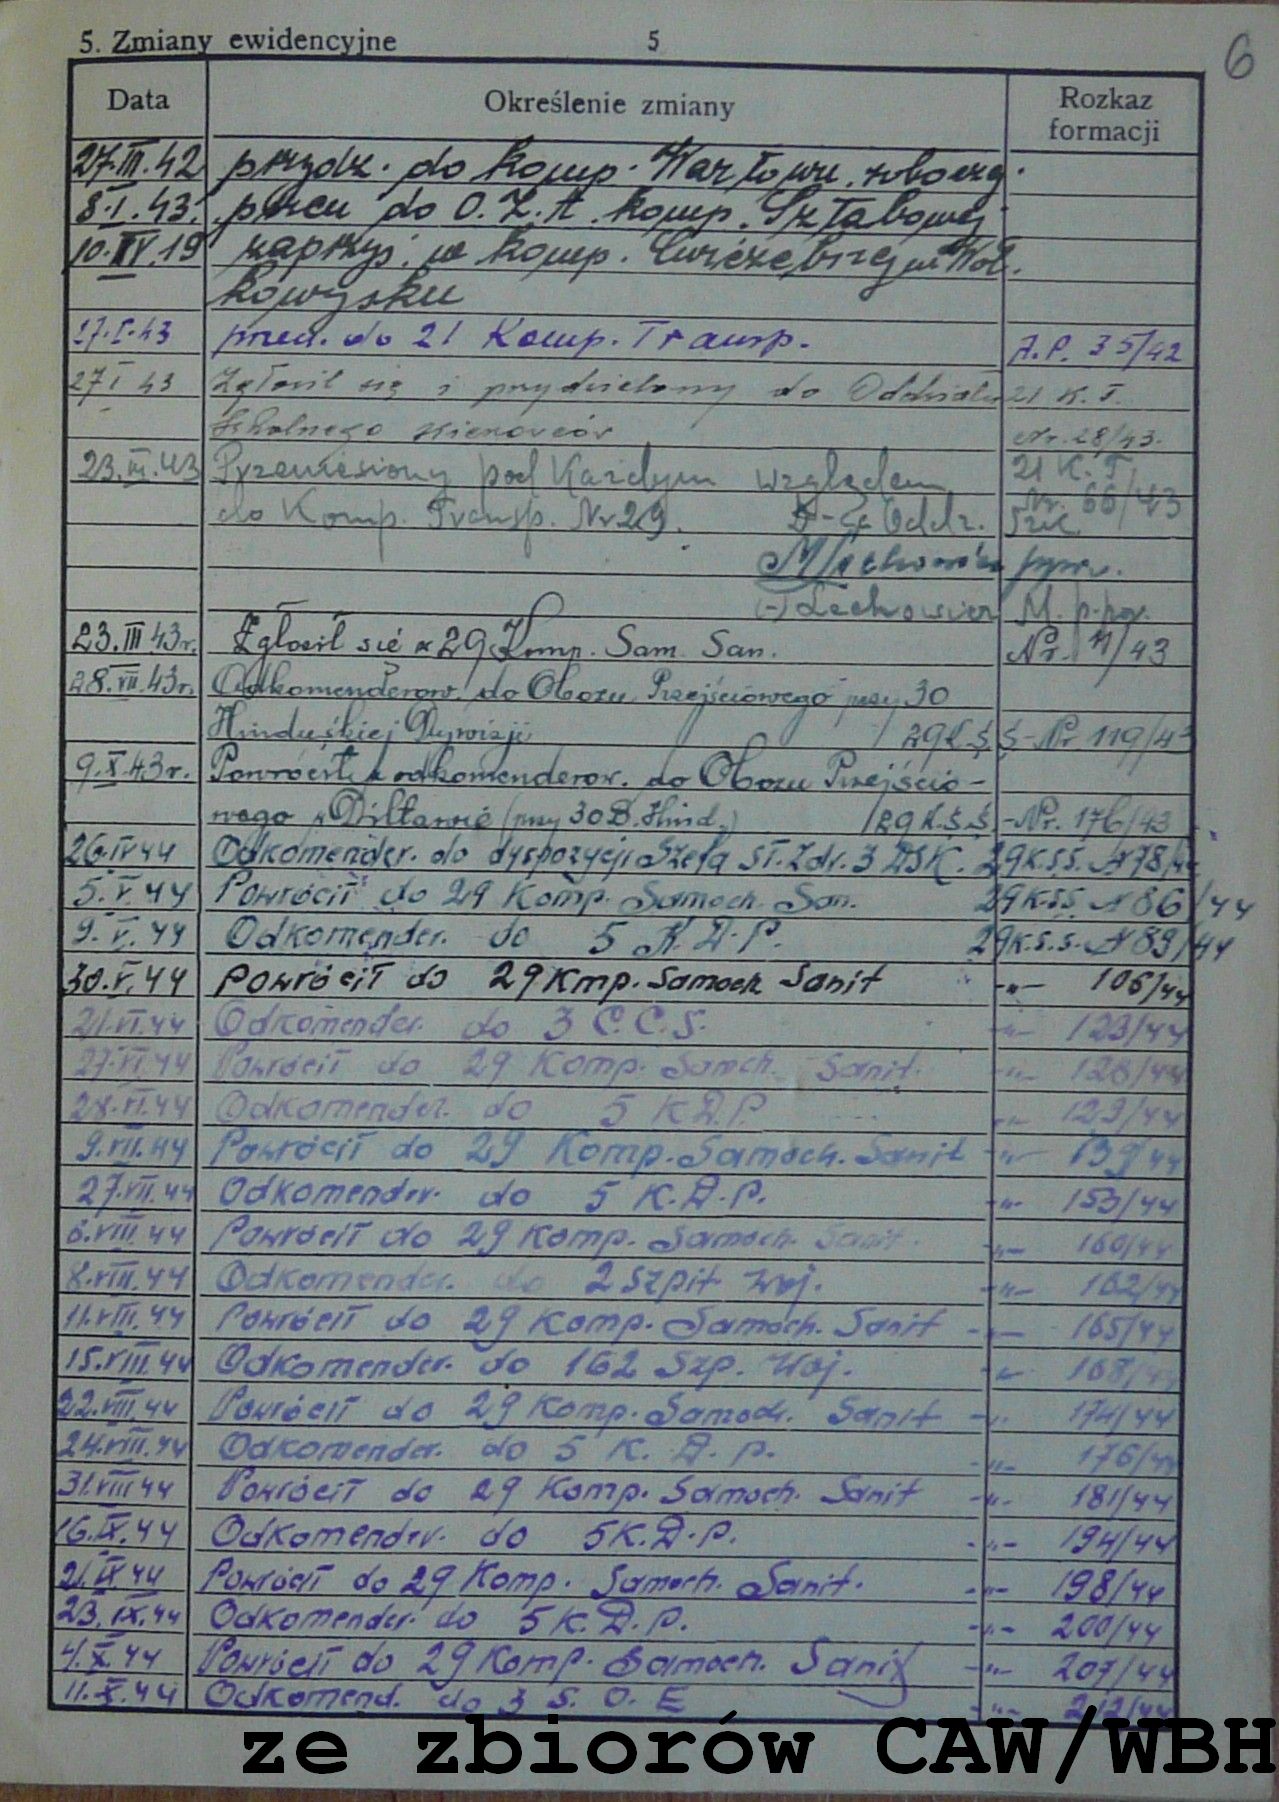 5. Zmiany ewidencyjne 5 6
Data Określenie zmiany Rozkaz formacji
27.III.42 przydz. do komp. Wartown. zborcz.
8.I.43. przen do O.Z.A. komp. Sztabowej
10.IV.19 zaprzys. w komp. w Woł-
kowysku
27.I.43 przen. do 21 Komp. Transp. A.P. 35/42
27 I 43 Zgłosił się i przydzielony do Oddziału 21 K.T.
Szkolnego kierowców Nr. 28/43.
23.III.43 Przeniesiony pod Każdym względem 21 K.T. Nr. 66/43
do Komp. Transp. Nr 29. D-ca Oddz. Szk.
(-) Lechowicz M. p-por.
23.III 43r. Zgłosił sie z 29 Komp. Sam. San. Nr. 4/43
28.VII.43r. Odkomenderow. do Obozu Przejściowego przy 30
Hinduskiej Dywizji 29K.S.S-Nr 119/43
9.X.43r. Powrócił z odkomenderow. do Obozu Przejścio-
wego w (przy 30 D. Hind.) 29K.S.S.-Nr. 176/43
26.IV 44 Odkomender. do dyspozycji Szefa Sł. Zdr. 3 DSK. 29K.S.S. N 78/44
5.V.44 Powrócił do 29 Komp. Samoch. San. 29K.S.S. N 86/44
9.V.44 Odkomender. do 5 K.D.P. 29K.S.S. N 89/44
30.V.44 Powrócił do 29 Kmp. Samoch Sanit -"- 106/44
21.VI.44 Odkomender. do 3 C.C.S. -"- 123/44
27.VI.44 Powrócił do 29 Komp. Samch. Sanit. -"- 128/44
28.VI.44 Odkomender. do 5 K.D.P. -"- 129/44
9.VII.44 Powrócił do 29 Komp. Samoch. Sanit -"- 139/44
27.VII.44 Odkomender. do 5 K.D.P. -"- 153/44
6.VIII.44 Powrócił do 29 Komp. Samoch. Sanit. -"- 160/44
8.VIII.44 Odkomender. do 2 Szpit Woj. -"- 162/44
11.VIII.44 Powrócił do 29 Komp. Samoch. Sanit -"- 165/44
15.VIII.44 Odkomender. do 162 Szp. Woj. -"- 168/44
22.VIII.44 Powrócił do 29 Komp. Samoch. Sanit -"- 174/44
24.VIII.44 Odkomender. do 5 K.D.P. -"- 176/44
31.VIII 44 Powrócił do 29 Komp. Samoch. Sanit -"- 181/44
16.IX.44 Odkomender. do 5K.D.P. -"- 194/44
21.IX.44 Powrócił do 29 Komp. Samoch. Sanit. -"- 198/44
23.IX.44 Odkomender. do 5K.D.P. -"- 200/44
4.X.44 Powrócił do 29 Komp. Samoch. Sanit -"- 207/44
11.X.44 Odkomend. do 3 S.O.E -"- 212/44
ze zbiorów CAW/WBH